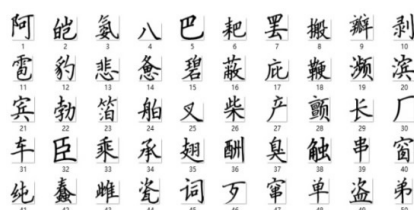 阿 皑 氨 八 巴 耙 罢 搬 瓣 剥
1 2 3 4 5 6 7 8 9 10
雷 豹 悲 惫 碧 蔽 庇 鞭 濒 滨
11 12 13 14 15 16 17 18 19 20
宾 勃 箔 舶 叉 柴 产 颤 长 厂
21 22 23 24 25 26 27 28 29 30
车 臣 乘 承 翅 酬 臭 触 串 窗
31 32 33 34 35 36 37 38 39 40
纯 蠢 雌 瓷 词 歹 窜 单 盗 弟